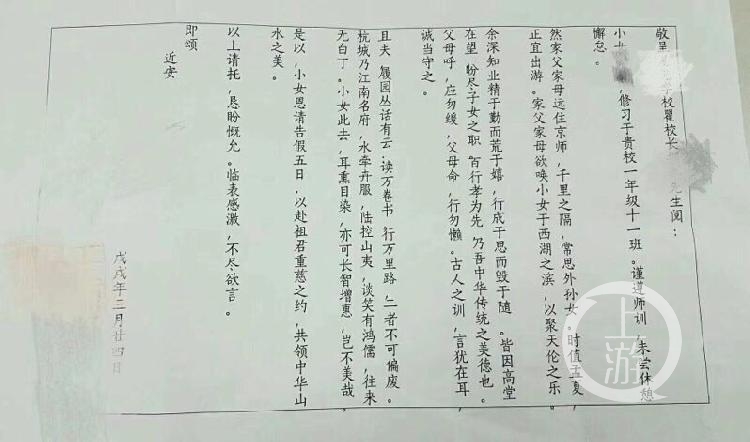 敬呈
学校瞿校长
先生阅：
小女
，修习于贵校一年级十一班。谨遵师训，未尝休憩
懈怠。
然家父家母远住京师，千里之隔，常思外孙女。时值孟夏，
正宜出游。家父家母欲唤小女于西湖之滨，以聚天伦之乐。
余深知业精于勤而荒于嬉，行成于思而毁于随。皆因高堂
在望，盼尽子女之职，百行孝为先，乃吾中华传统之美德也。
父母呼，应勿缓，父母命，行勿懒。古人之训，言犹在耳，
诚当守之。
且夫，履园丛话有云：读万卷书，行万里路，二者不可偏废。
杭城乃江南名府，水牵卉服，陆控山夷，谈笑有鸿儒，往来
无白丁。小女此去，耳熏目染，亦可长智增惠，岂不美哉。
是以，小女恳请告假五日，以赴祖君重慈之约，共领中华山
水之美。
以上请托，恳盼慨允。临表感激，不尽欲言。
即颂
近安
戊戌年二月廿四日
上游